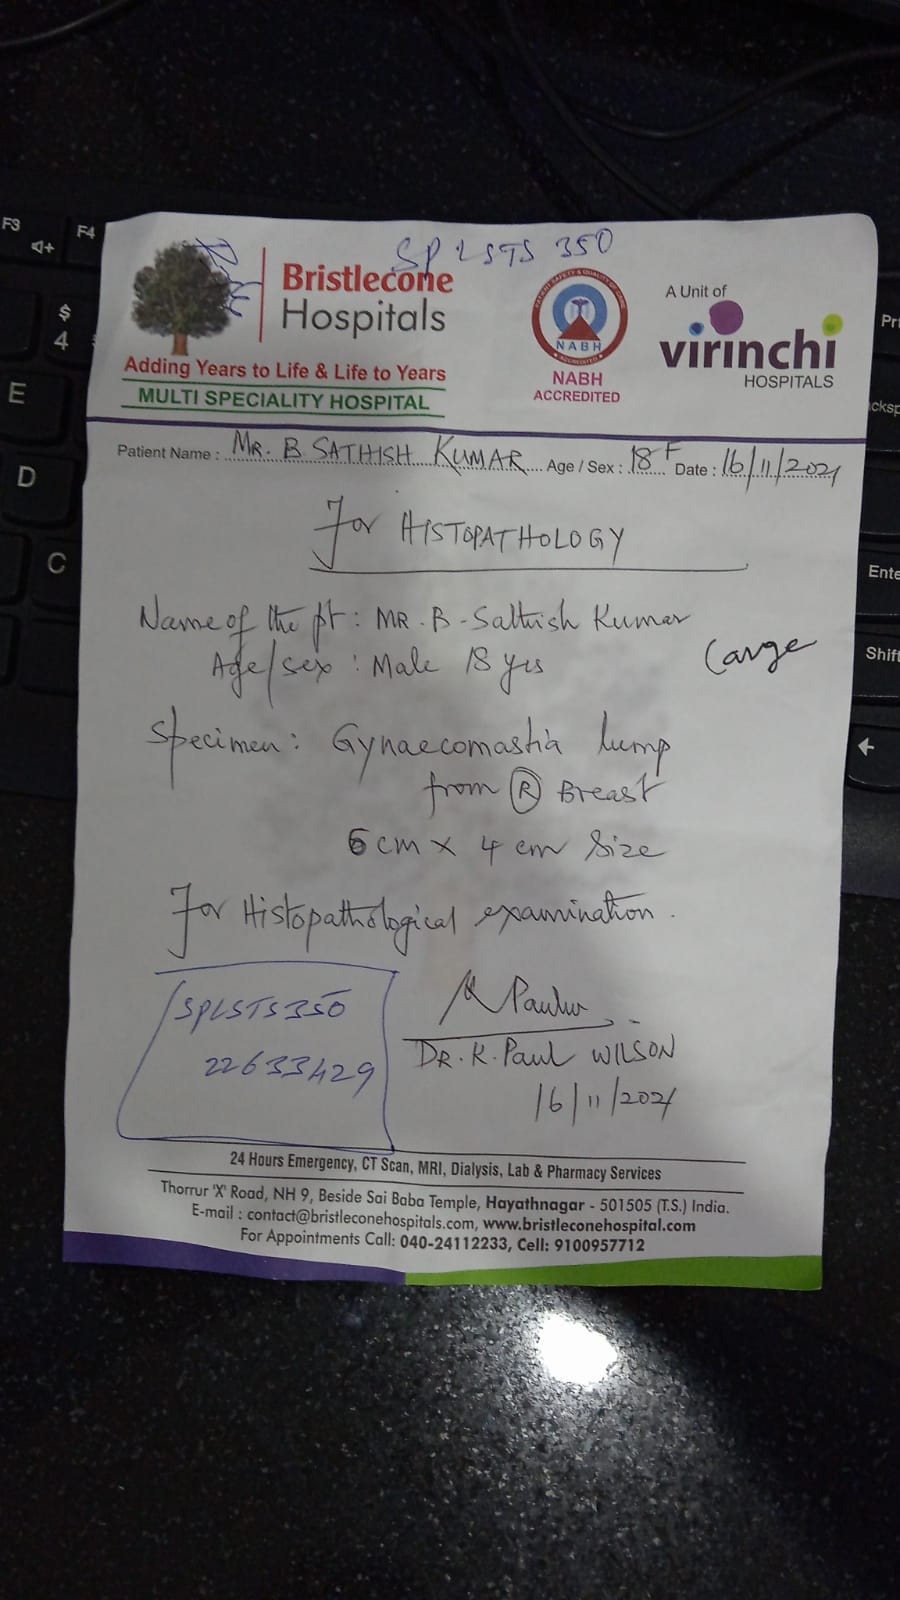 SPLSTS 350
Bristlecone
Hospitals
Adding Years to Life & Life to Years
MULTI SPECIALITY HOSPITAL
NABH
NABH
ACCREDITED
A Unit of
virinchi
HOSPITALS
Patient Name : MR. B SATHISH KUMAR Age / Sex : 18 F Date : 16/11/2021
For HISTOPATHOLOGY
Name of the pt : MR. B - Sathish Kumar
Age/sex : Male 18 yrs
Large
Specimen : Gynaecomastia lump
from (R) Breast
6 cm x 4 cm Size
For Histopathological examination.
SPLSTS350
22633429
DR. K. Paul WILSON
16/11/2021
24 Hours Emergency, CT Scan, MRI, Dialysis, Lab & Pharmacy Services
Thorrur 'X' Road, NH 9, Beside Sai Baba Temple, Hayathnagar - 501505 (T.S.) India.
E-mail : contact@bristleconehospitals.com, www.bristleconehospital.com
For Appointments Call: 040-24112233, Cell: 9100957712
F3
F4
$
4
E
D
C
Prt
cksp
Ente
Shift